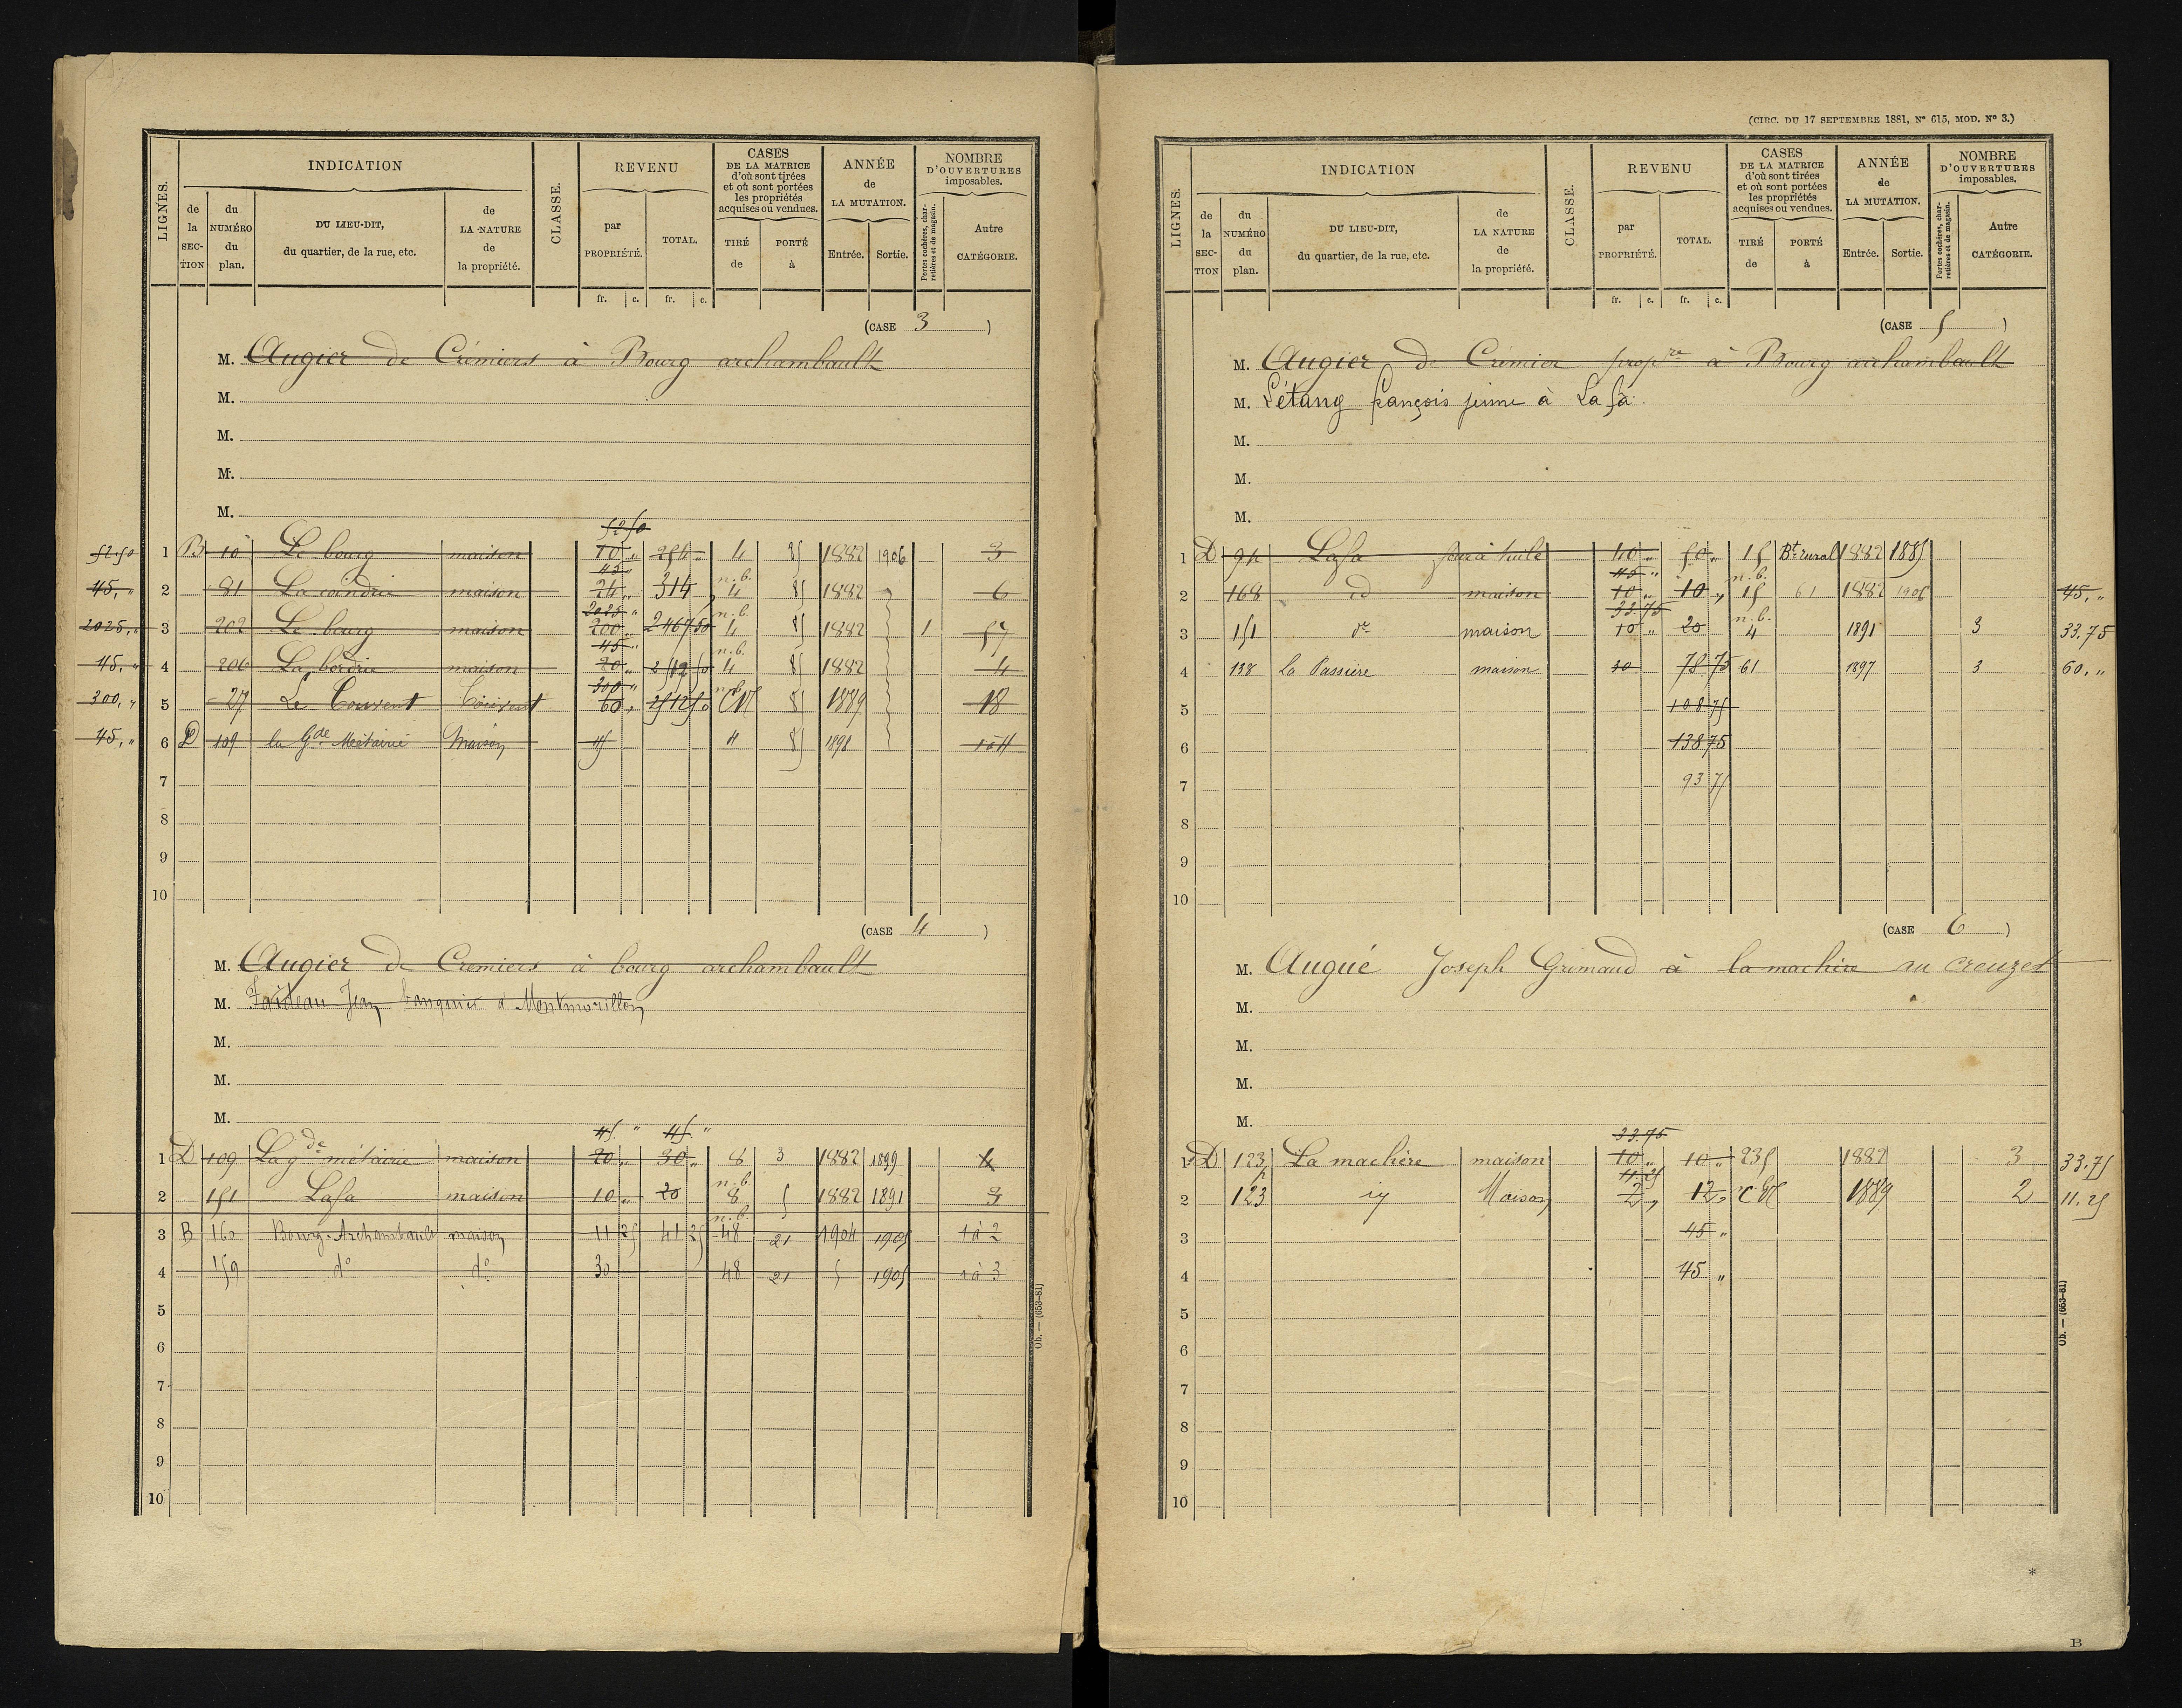 LIGNES.
INDICATION
de la SEC-TION
du NUMÉRO du plan.
DU LIEU-DIT, du quartier, de la rue, etc.
de LA NATURE de la propriété.
CLASSE.
REVENU
par PROPRIÉTÉ.
TOTAL.
fr. c. fr. c.
CASES DE LA MATRICE d'où sont tirées et où sont portées les propriétés acquises ou vendues.
TIRÉ de
PORTÉ à
ANNÉE de LA MUTATION.
Entrée. Sortie.
NOMBRE D'OUVERTURES imposables.
Portes cochères, charretières et de magasin.
Autre CATÉGORIE.
(CASE 3)
M. Augier de Crémiers à Bourg archambault
M.
M.
M.
M.
52.50
52.50 1 B 10 Le bourg maison 70 „ 254 „ 4 85 1882 1906 3
45 „ n.b.
45, „ 2 81 La coindrie maison 24 „ 314 4 85 1882 6
2025 „ n.b.
2025, „ 3 202 Le bourg maison 200 „ 2467 50 4 85 1882 1 57
45 „ n.b.
45, „ 4 206 La borderie maison 20 „ 2512 50 4 85 1882 4
300 „ n.b.
300, „ 5 27 Le Couvent Couvent 60 „ 2512 50 CN 85 1889 18
45, „ 6 D 109 la Gde Métairie Maison 45 4 85 1898
7
8
9
10
(CASE 4)
M. Augier de Cremiers à bourg archambault
M. Faideau Jean banquier à Montmorillon
M.
M.
M.
45. „ 45. „
1 D 109 La gde métairie maison 20 „ 30 „ 8 3 1882 1899 4
n.b.
2 151 Lafa maison 10 „ 20 8 5 1882 1891 3
n.b.
3 B 160 Bourg-Archambault maison 11 25 41 25 48 21 1904 1905 1à2
4 159 do do 30 48 21 1905 1à3
5
6
7
8
9
10
Ob. — (653-81)
(CIRC. DU 17 SEPTEMBRE 1881, No 615, MOD. No 3.)
LIGNES.
INDICATION
de la SEC-TION
du NUMÉRO du plan.
DU LIEU-DIT, du quartier, de la rue, etc.
de LA NATURE de la propriété.
CLASSE.
REVENU
par PROPRIÉTÉ.
TOTAL.
fr. c. fr. c.
CASES DE LA MATRICE d'où sont tirées et où sont portées les propriétés acquises ou vendues.
TIRÉ de
PORTÉ à
ANNÉE de LA MUTATION.
Entrée. Sortie.
NOMBRE D'OUVERTURES imposables.
Portes cochères, charretières et de magasin.
Autre CATÉGORIE.
(CASE 5)
M. Augier De Crémier propre à Bourg archambault
M. Létang françois jeune à Lafa.
M.
M.
M.
1 D 94 Lafa four à tuile 40 „ 50 „ 15 Bt rural 1882 1885
45 „ n.b.
2 168 id maison 10 „ 10 „ 15 61 1882 1906 45, „
33.75 n.b.
3 151 do maison 10 „ 20 4 1891 3 33.75
4 138 la Passière maison 30 78 75 61 1897 3 60, „
5 108 75
6 138 75
7 93 75
8
9
10
(CASE 6)
M. Augué Joseph Grimaud à la machère au creuzet
M.
M.
M.
M.
33.75
1 D 123 La machère maison 10 „ 10 „ 235 1882 3 33.75
11.25
2 123 p Maison 2 „ 12 „ 1889 2 11.25
3 45 „
4 45 „
5
6
7
8
9
10
Ob. — (653-81)
*
B